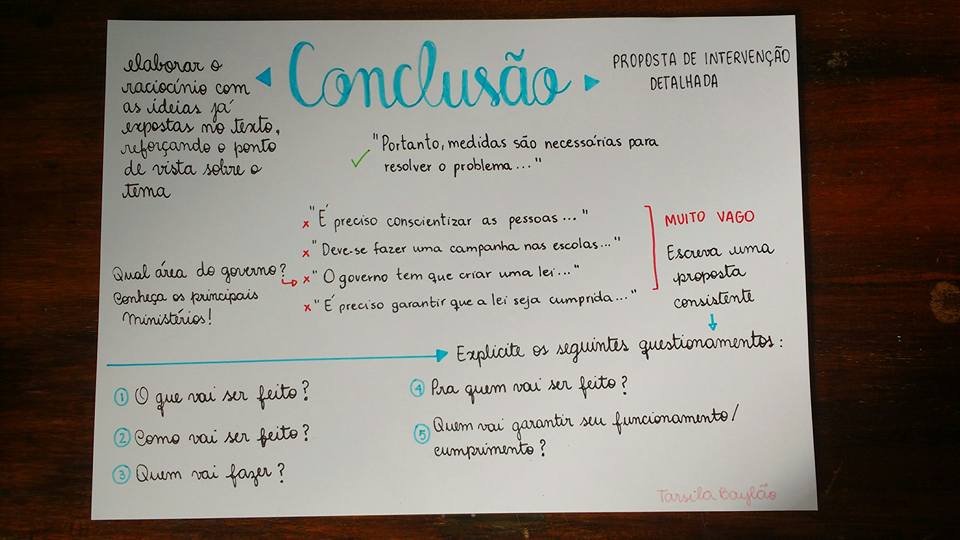 elaborar o
raciocínio com
as ideias já
expostas no texto,
reforçando o ponto
de vista sobre o
tema
Conclusão
PROPOSTA DE INTERVENÇÃO
DETALHADA
"Portanto, medidas são necessárias para
resolver o problema..."
x "É preciso conscientizar as pessoas..."
x "Deve-se fazer uma campanha nas escolas..."
x "O governo tem que criar uma lei..."
x "É preciso garantir que a lei seja cumprida..."
MUITO VAGO
Escreva uma
proposta
consistente
Qual área do governo?
Conheça os principais
Ministérios!
Explicite os seguintes questionamentos:
1 O que vai ser feito?
2 Como vai ser feito?
3 Quem vai fazer?
4 Pra quem vai ser feito?
5 Quem vai garantir seu funcionamento/
cumprimento?
Tarsila Baylão